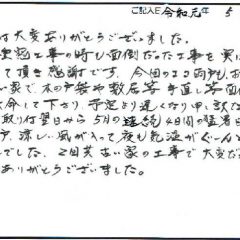 ご記入日 令和元年 5
は大変ありがとうございました。
工事の時も面倒だった工事を実に
して頂き感謝です。今回の2ヵ所も、お
い家で、木の戸袋や敷居等手直し等面倒
命して下さり、予定より遅くなり申し訳な
取り付翌日から5月の連続4日間の猛暑日
戸、涼しい風が入って夜も乾温がぐーんと
でした。2回共古い家の工事で大変だ
ありがとうございました。